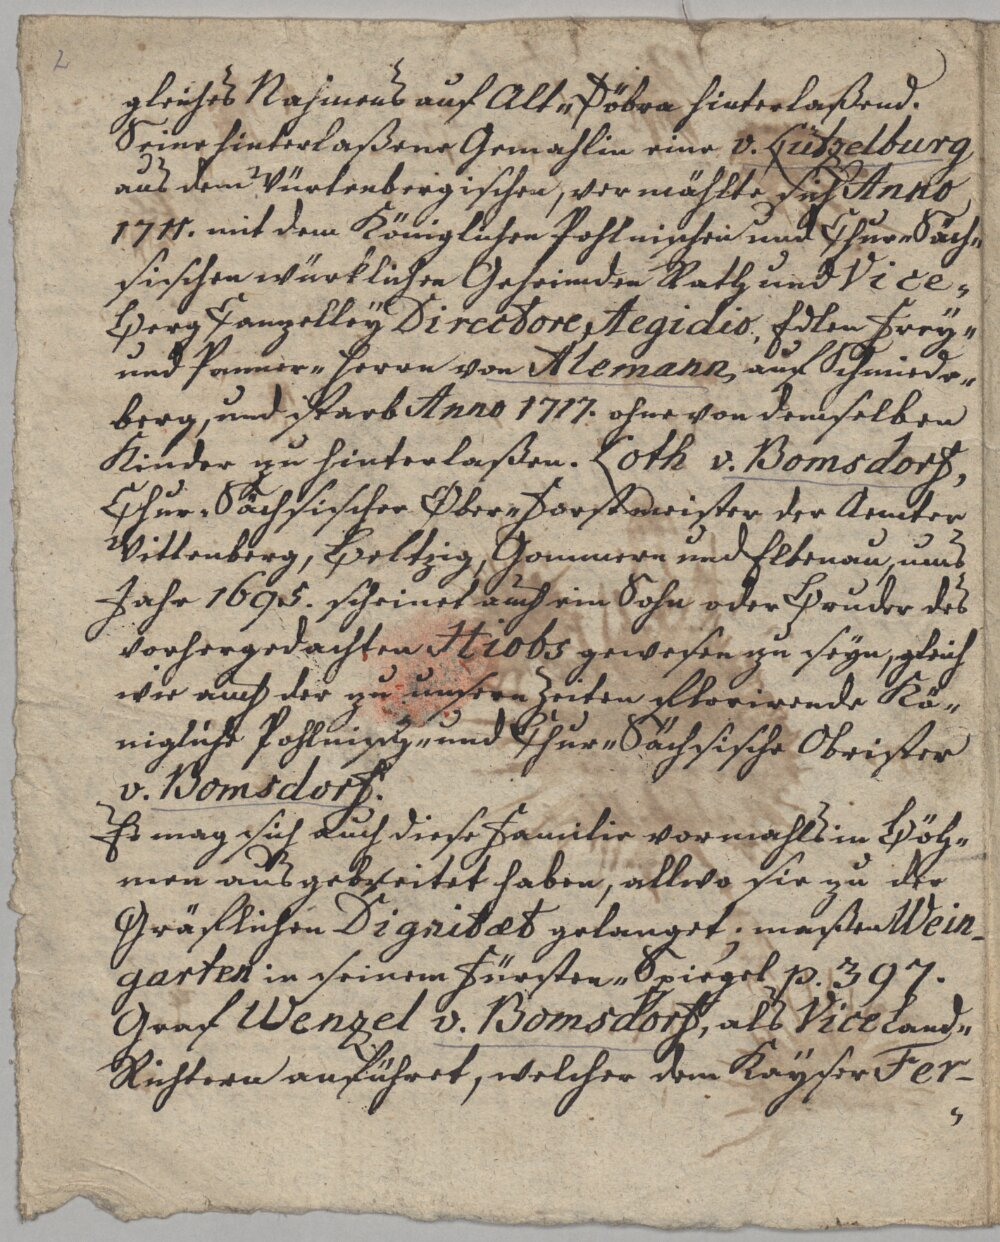 2
gleiches Nahmens auf Alt-Döbra hinterlaßend.
Seine hinterlaßene Gemahlin eine v. Lützelburg
aus dem Würtenbergischen, vermählte sich Anno
1711. mit dem Königlichen Pohlnischen und Chur-Säch-
sischen würklichen Geheimden Rath und Vice-
Berg Canzelley Directore, Aegidio, Edlen Frey-
und Panner-Herrn von Alemann, auf Schmiede-
berg, und starb Anno 1717. ohne von demselben
Kinder zu hinterlaßen. Loth v. Bomsdorf,
Chur-Sächsischer Ober-Forstmeister der Aemter
Wittenberg, Beltzig, Gommern und Elbenau, ums
Jahr 1695. scheinet auch ein Sohn oder Bruder des
vorhergedachten Hiobs gewesen zu seyn, gleich
wie auch der zu unsern Zeiten florirende Kö-
nigliche Pohlnisch- und Chur-Sächsische Obrister
v. Bomsdorf.
Es mag sich auch diese Familie vormahls in Böh-
men ausgebreitet haben, allwo sie zu der
Gräflichen Dignitæt gelanget; maßen Wein-
garten in seinem Fürsten-Spiegel p. 397.
Graf Wenzel v. Bomsdorf, als Vice Land-
Richtern anführet, welcher dem Kayser Fer-